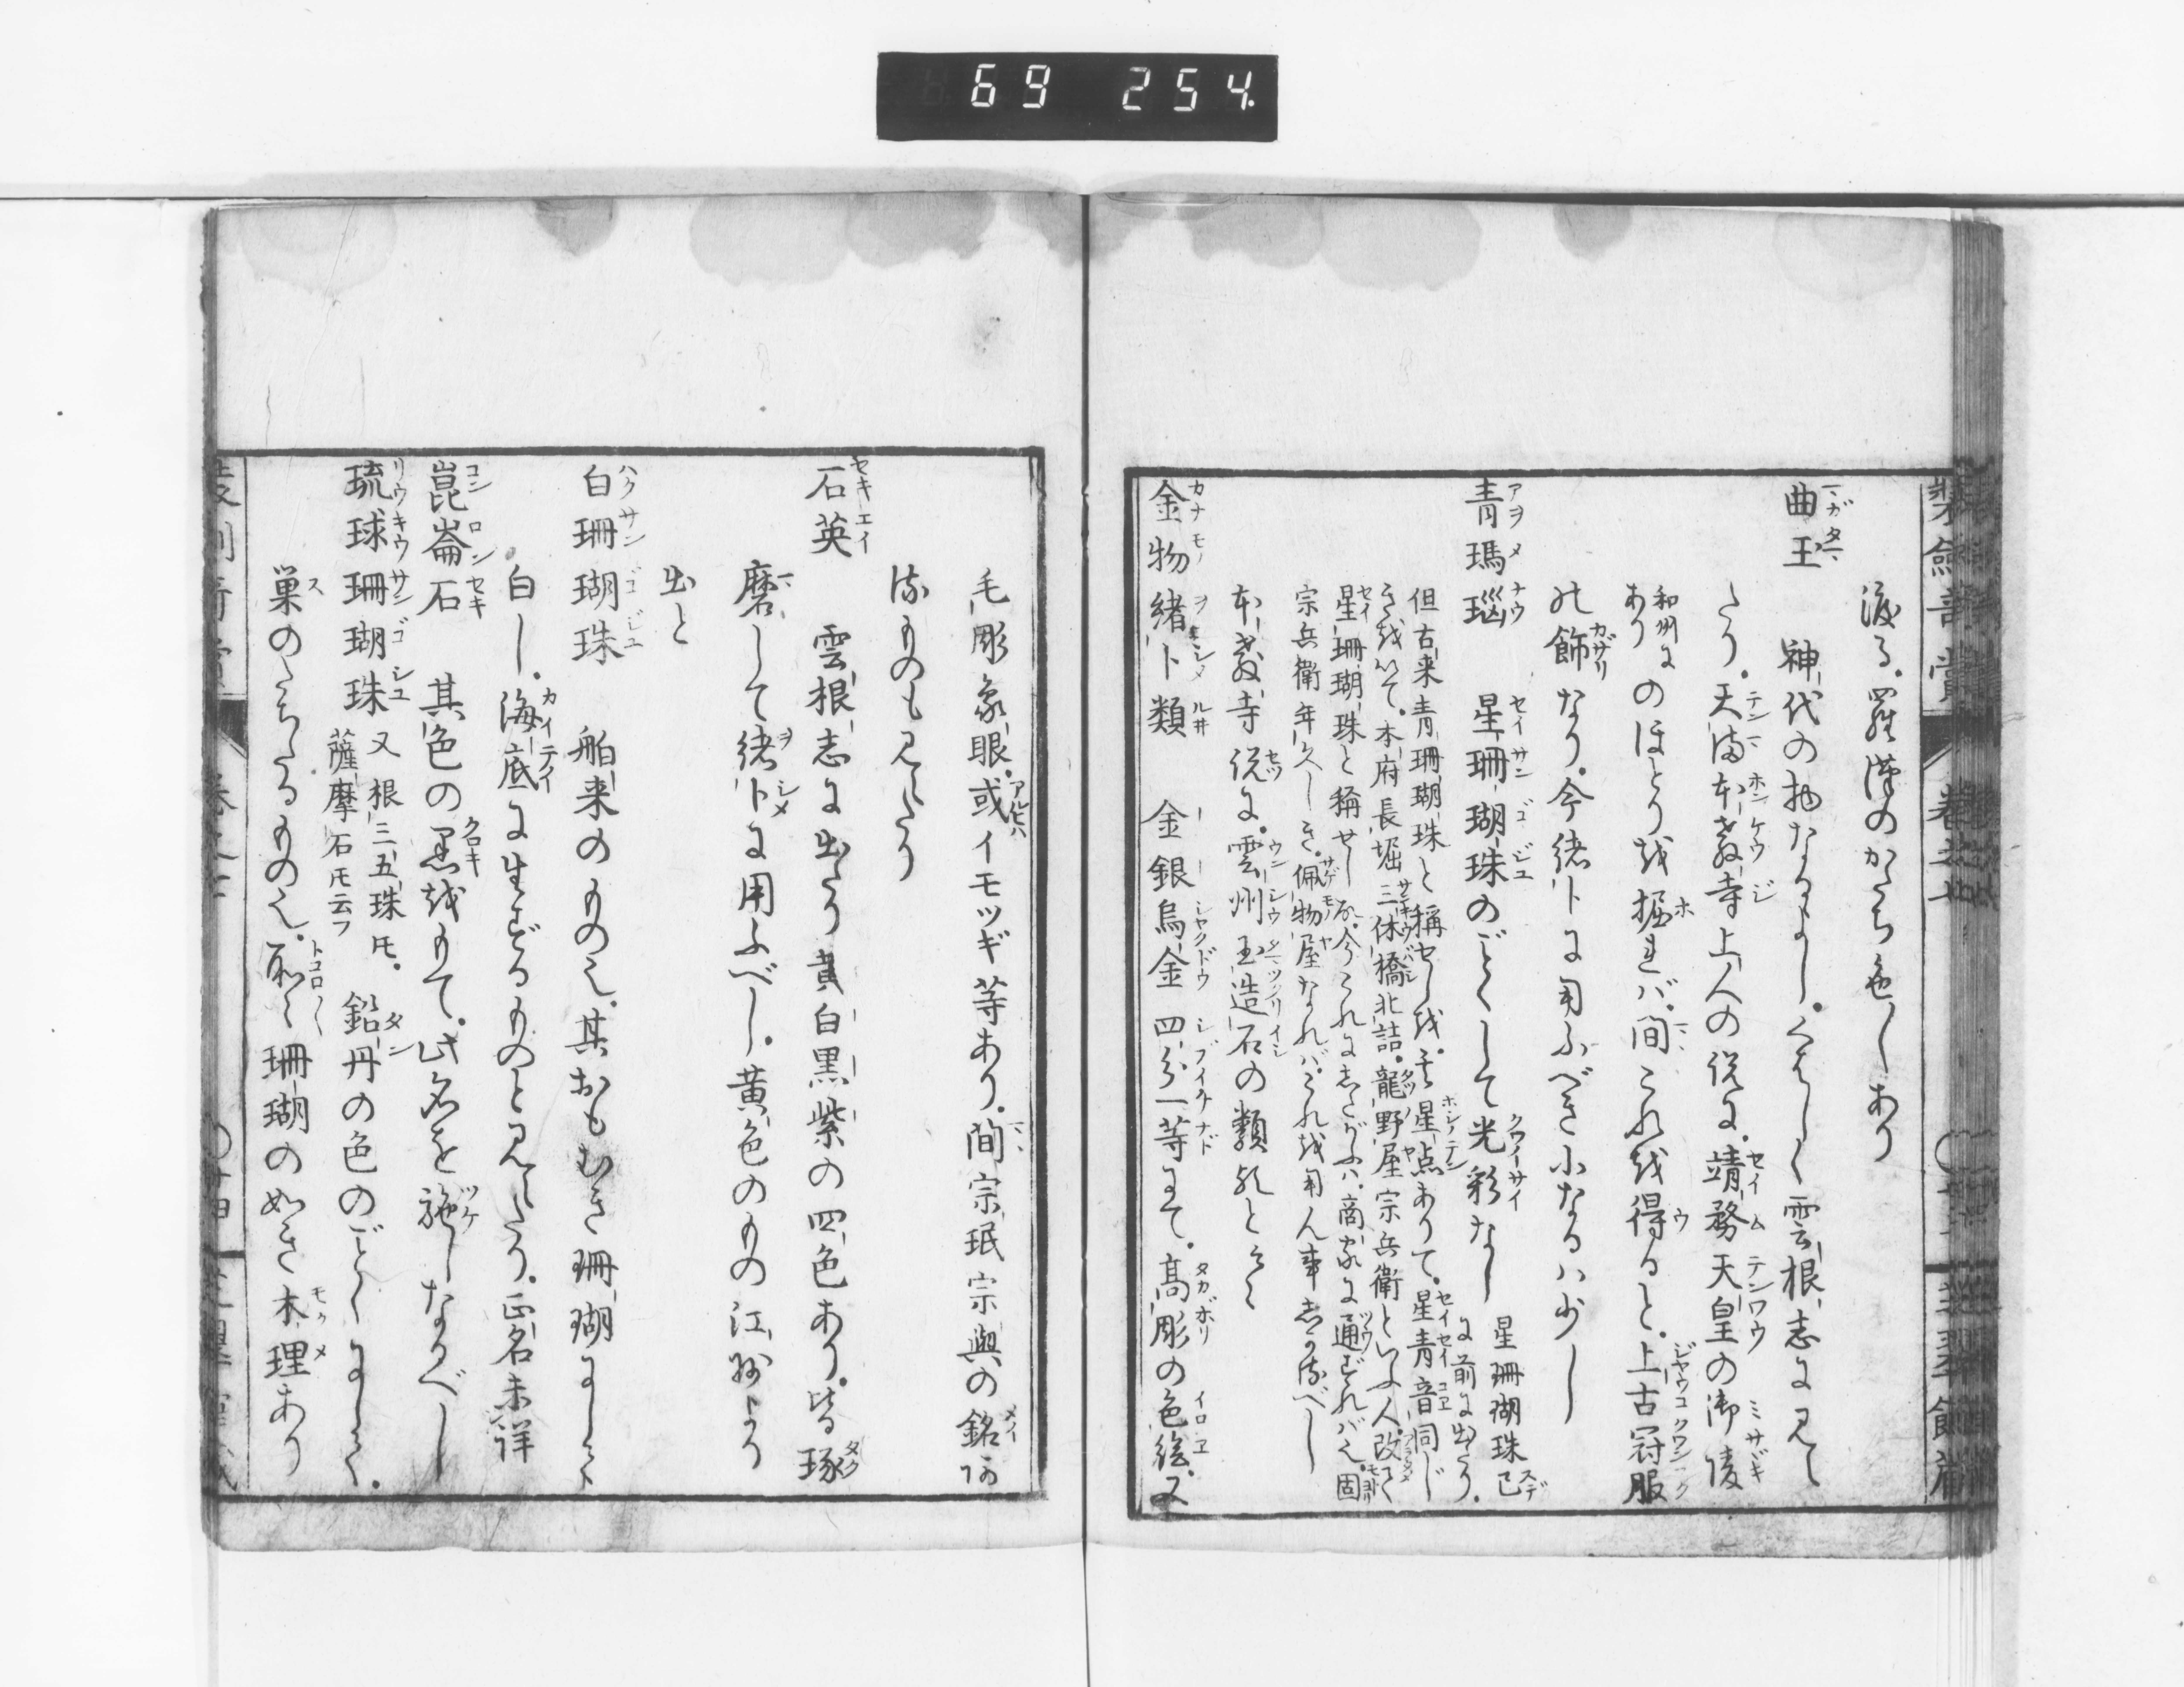 69 254
渡る。羅漢のかたち色〻あり
曲玉 神代の物なるよし。くはしく雲根志に見へ
たり。天満本教寺上人の説に。靖務天皇の御陵
和州にありのほとりを掘れバ。間これを得ると。上古冠服
の飾なり。今緒〆に用ふべき小なるハ少し
青瑪瑙 星珊瑚珠のごとくして光彩なし 星珊瑚珠已に前に出たり。
但古来青珊瑚珠と稱せしを。星点ありて。星青音同じ
きを以て。本府長堀三休橋北詰。龍野屋宗兵衛といふ人。改て
星珊瑚珠と稱せし。今これにしたがふハ。商家に通ずれバ也。固
宗兵衛年久しき。佩物屋なれバ。これを用ん事しかるべし
本教寺説に。雲州玉造石の類と云〻
金物緒〆類 金銀烏金四分一等にて。高彫の色絵。又
毛彫象眼。或イモツギ等あり。間宗珉宗與の銘
るものも見へたり
石英 雲根志に出たり黄白黒紫の四色あり。皆琢
磨して緒〆に用ふべし。黄色のもの江州より
出と
白珊瑚珠 舶来のもの也。其おもむき珊瑚にして
白し。海底に生ずるものと見へたり。正名未詳
崑崙石 其色の黒を以て。此名を施しなるべし
琉球珊瑚珠 又根三五珠トモ。薩摩石トモ云フ 鉛丹の色のごとくにして。
巣のたちたるもの也。所〻珊瑚の如き木理あり